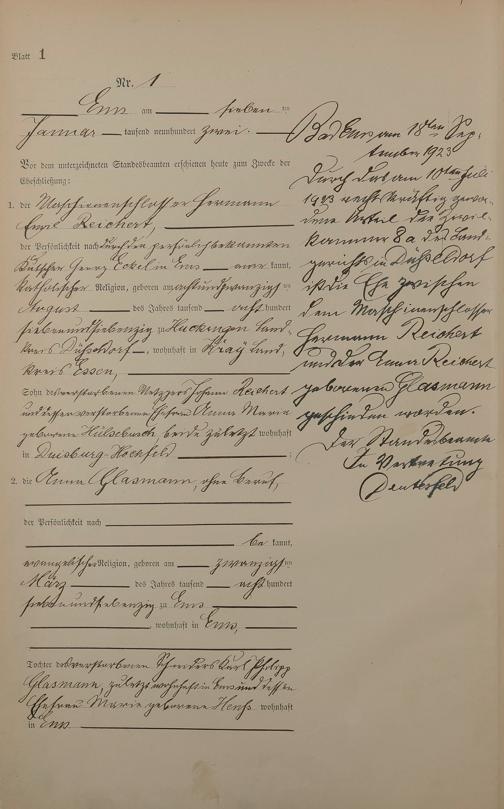 Blatt 1
Nr. 1
Ems am sieben ten
Januar tausend neunhundert zwei.
Vor dem unterzeichneten Standesbeamten erschienen heute zum Zwecke der
Eheschließung:
1. der Maschinenschlosser Hermann
Emil Reichert,
der Persönlichkeit nach durch den persönlich bekannten
Kutscher Georg Eckel in Ems anerkannt,
katholischer Religion, geboren am achtundzwanzigsten
August des Jahres tausend achthundert
siebenundsiebenzig zu Huckingen Land-
kreis Düsseldorf, wohnhaft in Kray Land-
kreis Essen,
Sohn des verstorbenen Johann Reichert
und dessen verstorbenen Ehefrau Anna Maria
geborene Hülsebusch, beide zuletzt wohnhaft
in Duisburg-Hochfeld;
2. die Anna Glasmann, ohne Beruf,
der Persönlichkeit nach
be kannt,
evangelischer Religion, geboren am zwanzigsten
März des Jahres tausend achthundert
siebenundsiebenzig zu Ems
, wohnhaft in Ems,
Tochter des verstorbenen Schneiders Karl Philipp
Glasmann, zuletzt wohnhaft in Ems und dessen
Ehefrau Marie geborene wohnhaft
in Ems
Bad Ems am 18ten Sep-
tember 1923
Durch das am 10ten Juli
1923 rechtskräftig gewor-
dene Urteil der Zivil-
kammer 8a des Land-
gerichts in Düsseldorf
ist die Ehe zwischen
dem Maschinenschlosser
Hermann Reichert
und der Anna Reichert
geborenen Glasmann
geschieden worden.
Der Standesbeamte
In Vertretung